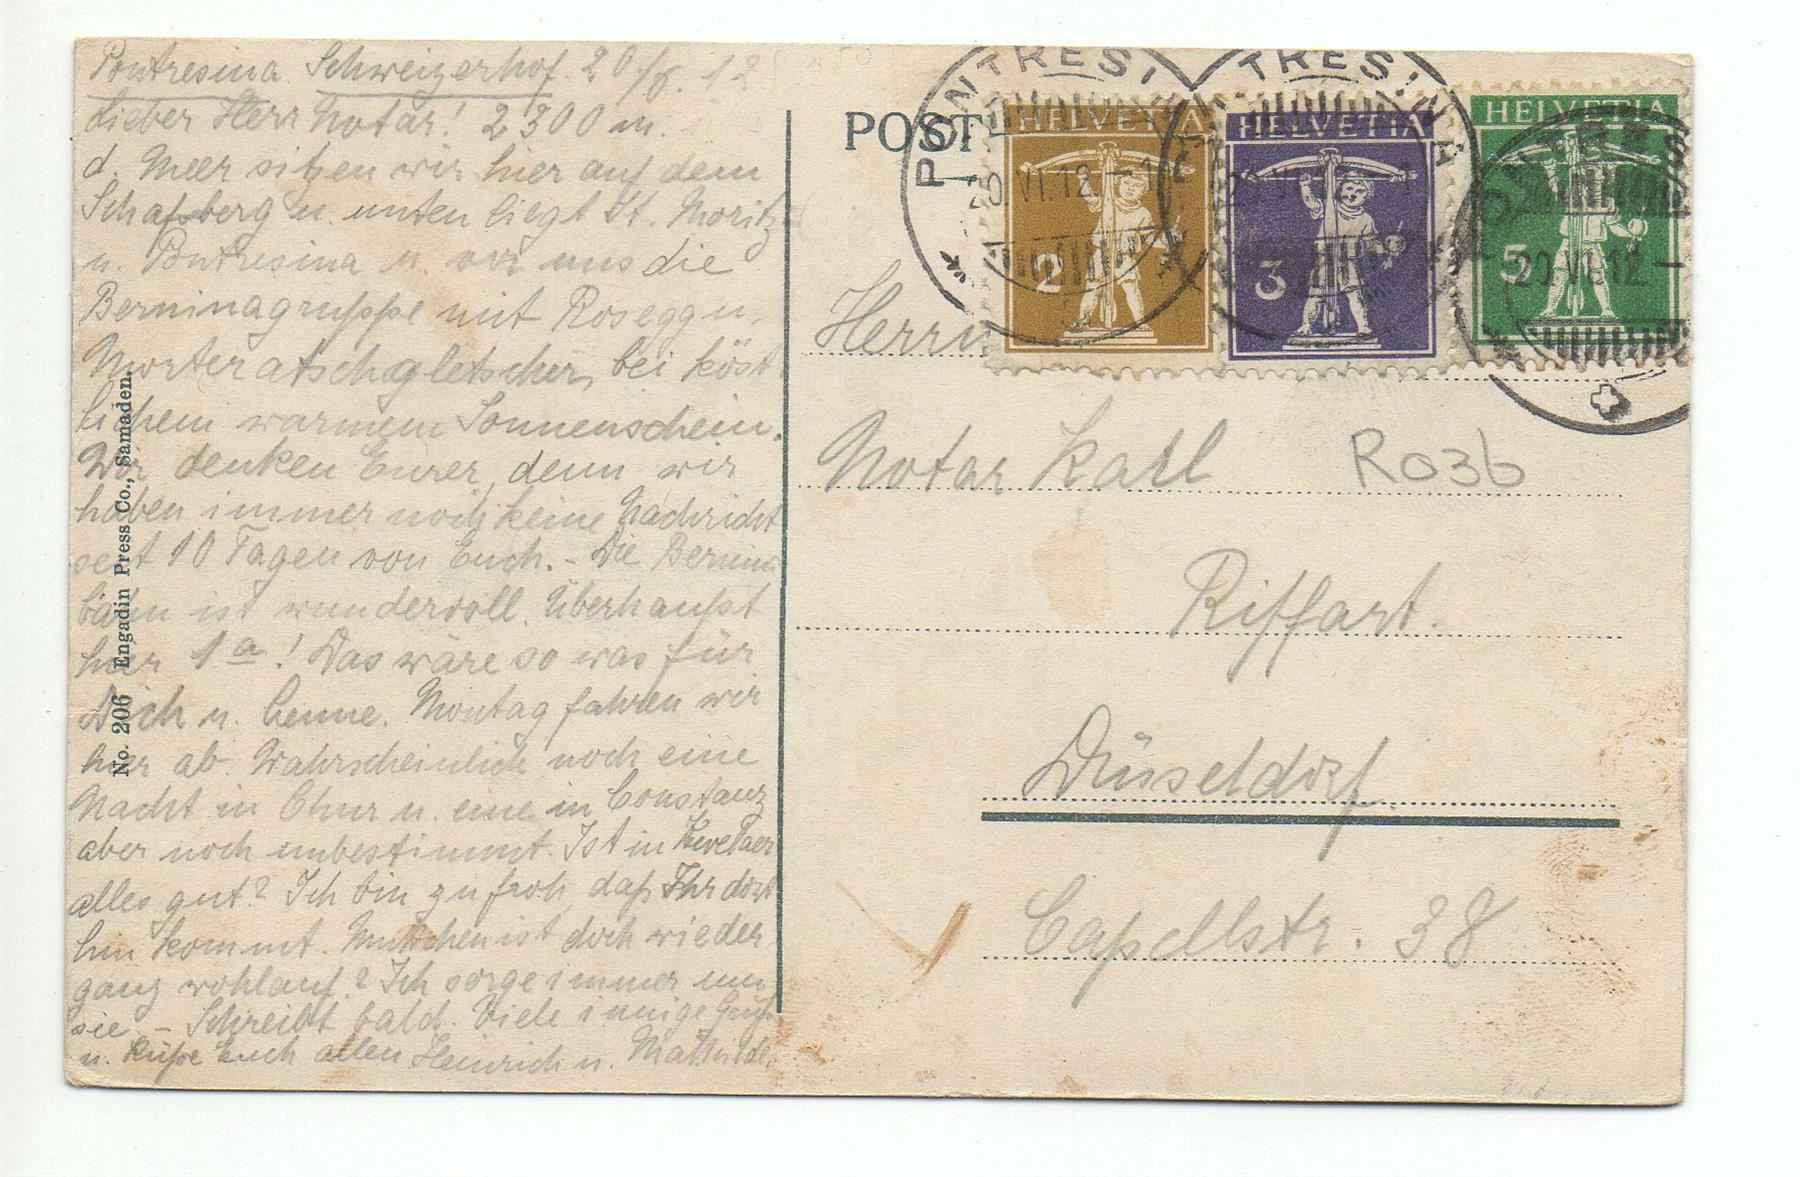 Pontresina Schweizerhof 20/6.12
Lieber Herr Notar! 2300 m.
d. Meer sitzen wir hier auf dem
Schafsberg u. unten liegt St. Moritz
u. Pontresina u. vor uns die
Berninagruppe mit Rosegg u.
Morteratschgletscher, bei köst
lichem warmem Sonnenschein.
Wir denken Eurer, denn wir
haben immer noch keine Nachricht
seit 10 Tagen von Euch. - Die Bernina
bahn ist wundervoll. Überhaupt
hier 1a! Das wäre so was für
Dich u. Henne. Montag fahren wir
hier ab. Wahrscheinlich noch eine
Nacht in Chur u. eine in Constanz
aber noch unbestimmt. Ist in
alles gut? Ich bin zu froh, daß Ihr dort
hin kommt. Muttchen ist doch wieder
ganz wohlauf? Ich sorge immer um
sie. - Schreibt bald. Viele innige Grüße
u. Küße Euch allen Heinrich u. Mathilde
No. 206 Engadin Press Co., Samaden.
POST
HELVETIA
2
HELVETIA
3
HELVETIA
5
PONTRESINA
VI.12
TRESINA
20 VI.12
Herrn
Notar Karl
R03b
Riffart.
Düsseldorf
Capellstr. 38